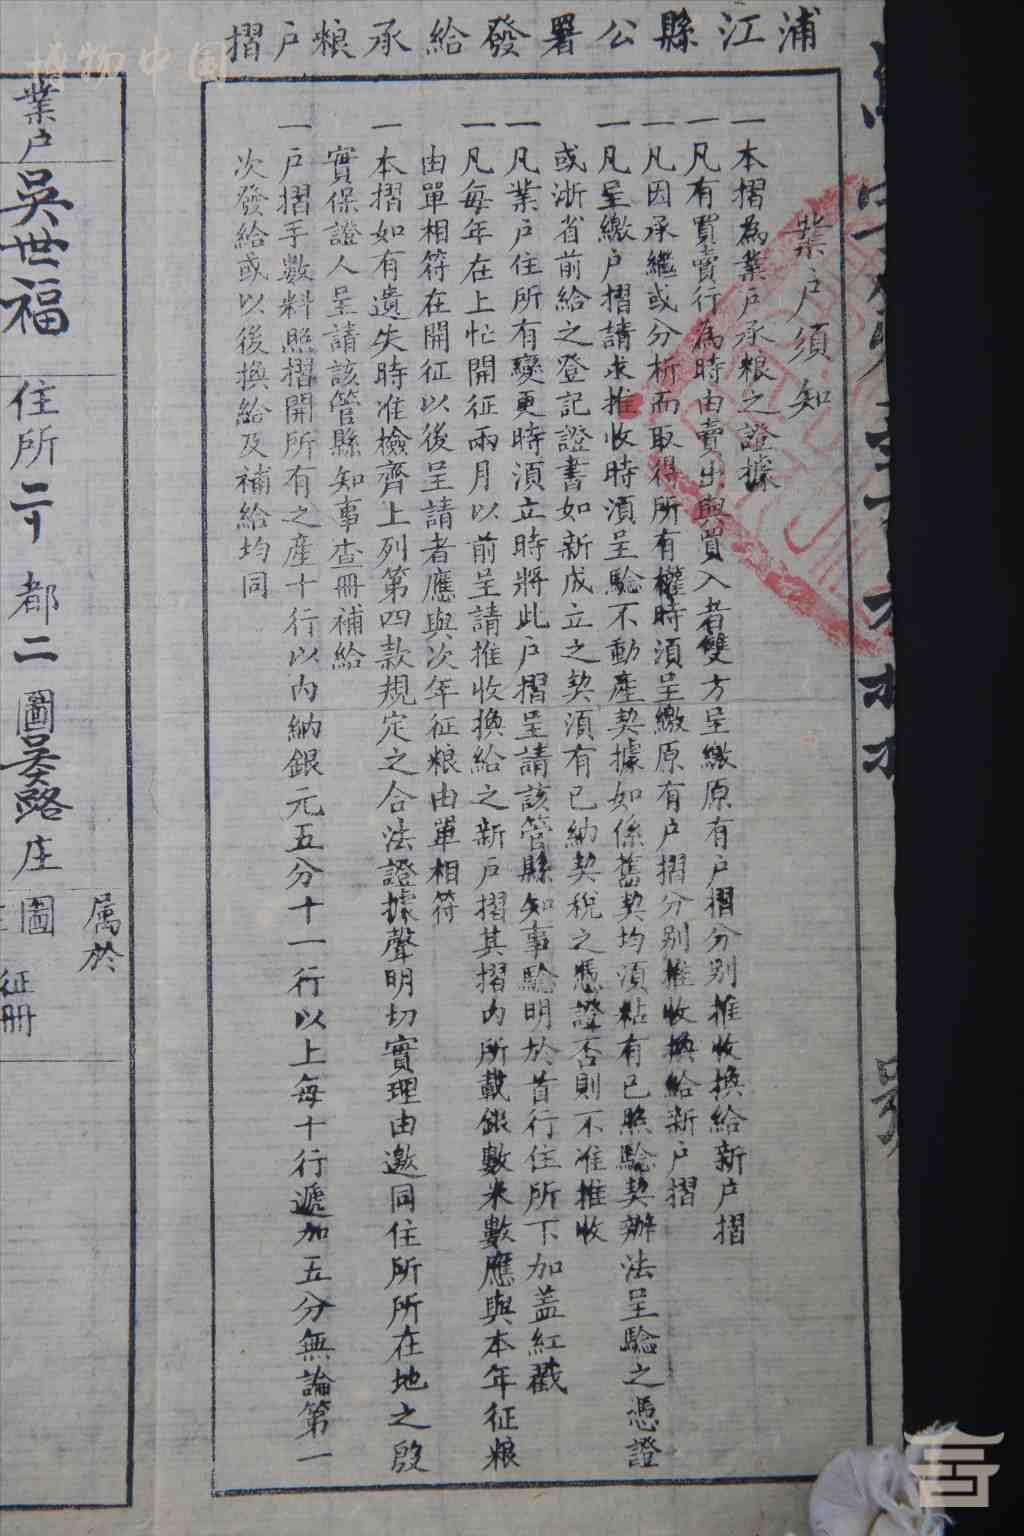 浦江縣公署發給承粮戶摺
業戶須知
一本摺為業戶承粮之證據
一凡有買賣行為時由賣出與買入者雙方呈繳原有戶摺分別推收換給新戶摺
一凡因承繼或分析而取得所有權時須呈繳原有戶摺分別推收換給新戶摺
一凡呈繳戶摺請求推收時須呈驗不動產契據如係舊契均須粘有已照驗契辦法呈驗之憑證
或浙省前給之登記證書如新成立之契須有已納契稅之憑證否則不准推收
一凡業戶住所有變更時須立時將此戶摺呈請該管縣知事驗明於首行住所下加蓋紅戳
一凡每年在上忙開征兩月以前呈請推收換給之新戶摺其摺內所載銀數米數應與本年征粮
由單相符在開征以後呈請者應與次年征粮由單相符
一本摺如有遺失時准檢齊上列第四款規定之合法證據聲明切實理由邀同住所所在地之殷
實保證人呈請該管縣知事查冊補給
一戶摺手數料照摺開所有之產十行以內納銀元五分十一行以上每十行遞加五分無論第一
次發給或以後換給及補給均同
業戶 吳世福 住所 二十 都 二 圖 吳路 庄
屬於
圖
征冊
博物中国